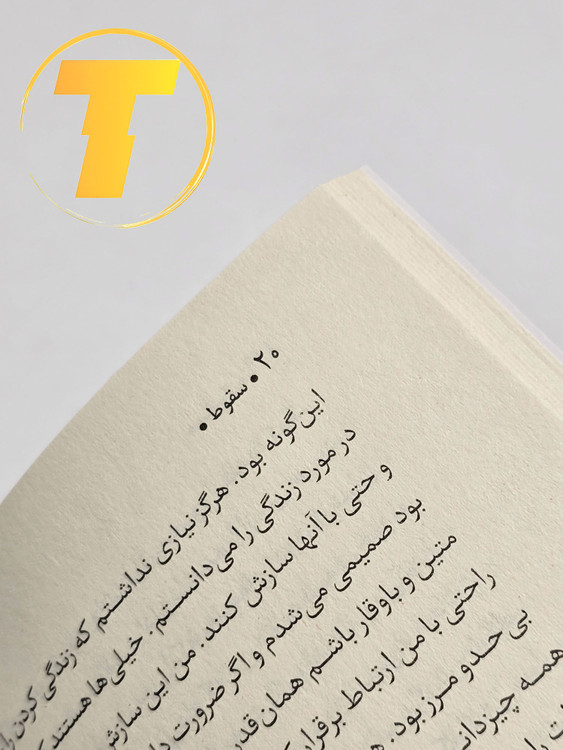 T
۲۰ • سقوط •
این‌گونه بود. هرگز نیازی نداشتم که زندگی کردن را
در مورد زندگی را می‌دانستم. خیلی‌ها هستند
و حتی با آنها سازش کنند. من این سازش
بود صمیمی می‌شدم و اگر ضرورت
متین و باوقار باشم همان قدر
راحتی با من ارتباط برقرار
بی حد و مرز بود.
همه چیزدان